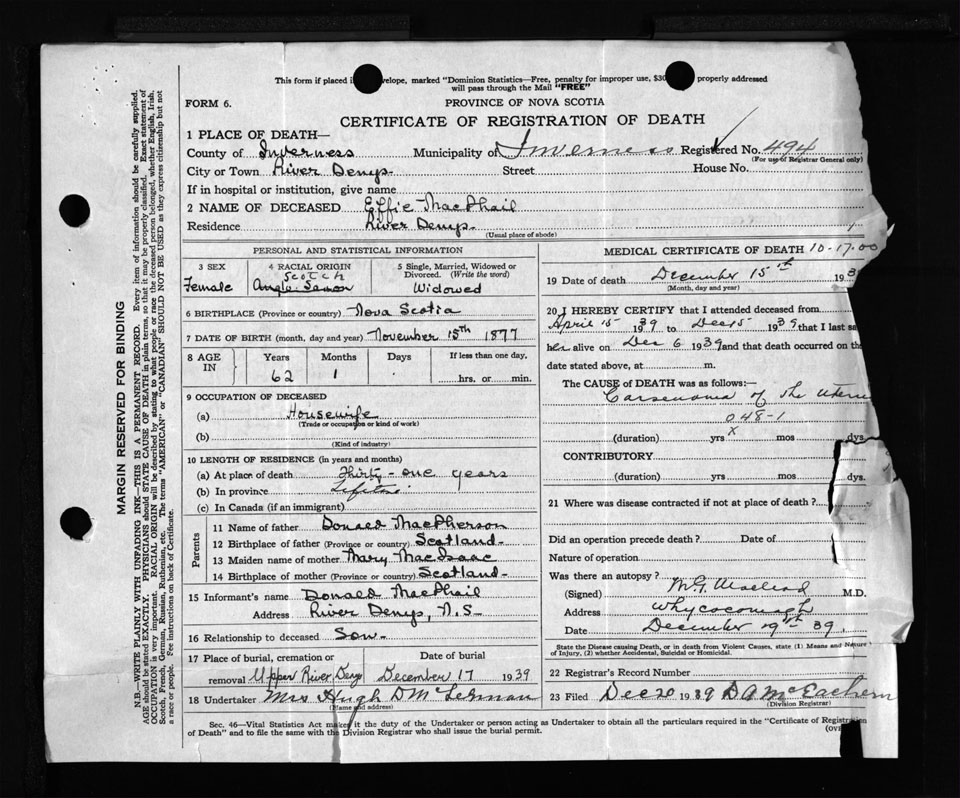 This form if placed in envelope, marked "Dominion Statistics—Free, penalty for improper use, $30 properly addressed
will pass through the Mail "FREE"
FORM 6.
PROVINCE OF NOVA SCOTIA
CERTIFICATE OF REGISTRATION OF DEATH
1 PLACE OF DEATH—
County of Inverness Municipality of Inverness Registered No. 494
(For use of Registrar General only)
City or Town River Denys. Street House No.
If in hospital or institution, give name
2 NAME OF DECEASED Effie MacPhail
Residence River Denys.
(Usual place of abode)
PERSONAL AND STATISTICAL INFORMATION
3 SEX 4 RACIAL ORIGIN 5 Single, Married, Widowed or
Divorced. (Write the word)
Scotch
Female Anglo-Saxon Widowed
6 BIRTHPLACE (Province or country) Nova Scotia
7 DATE OF BIRTH (month, day and year) November 15th 1877
8 AGE IN Years Months Days If less than one day,
62 1 hrs. or min.
9 OCCUPATION OF DECEASED
(a) Housewife
(Trade or occupation or kind of work)
(b)
(Kind of industry)
10 LENGTH OF RESIDENCE (in years and months)
(a) At place of death Thirty-one years
(b) In province Lifetime
(c) In Canada (if an immigrant)
Parents
11 Name of father Donald MacPherson
12 Birthplace of father (Province or country) Scotland-
13 Maiden name of mother Mary MacIsaac
14 Birthplace of mother (Province or country) Scotland-
15 Informant's name Donald MacPhail
Address River Denys, N.S-
16 Relationship to deceased Son.
17 Place of burial, cremation or Date of burial
removal Upper River Denys December 17 1939
18 Undertaker Mrs Hugh D
(Name and address)
MEDICAL CERTIFICATE OF DEATH 10-17.00
19 Date of death December 15th 193
(Month, day and year)
20 I HEREBY CERTIFY that I attended deceased from
April 15 1939 to Dec 15 1939 that I last sa
her alive on Dec 6 1939 and that death occurred on the
date stated above, at m.
The CAUSE OF DEATH was as follows:—
Carsenomia of the uteru
048-1
x
(duration) yrs mos dys.
CONTRIBUTORY
(duration) yrs. mos. dys.
21 Where was disease contracted if not at place of death?
Did an operation precede death? Date of
Nature of operation
Was there an autopsy?
(Signed) M.G. Macleod M.D.
Address Whycocomagh
Date December 19th 39
State the Disease causing Death, or in death from Violent Causes, state (1) Means and Nature
of Injury, (2) whether Accidental, Suicidal or Homicidal.
22 Registrar's Record Number
23 Filed Dec 20 1939 D A McEachern
(Division Registrar)
Sec. 46—Vital Statistics Act makes it the duty of the Undertaker or person acting as Undertaker to obtain all the particulars required in the "Certificate of Registration
of Death" and to file the same with the Division Registrar who shall issue the burial permit.
(OV
MARGIN RESERVED FOR BINDING
N.B.—WRITE PLAINLY WITH UNFADING INK—THIS IS A PERMANENT RECORD. Every item of information should be carefully supplied.
AGE should be stated EXACTLY. PHYSICIANS should STATE CAUSE OF DEATH in plain terms, so that it may be properly classified. Exact statement of
OCCUPATION is very important. RACIAL ORIGIN will be described by stating to what people or race the deceased person belonged, whether English, Irish,
Scotch, French, German, Russian, Ruthenian, etc. The terms "AMERICAN" or "CANADIAN" SHOULD NOT BE USED as they express citizenship but not
a race or people. See instructions on back of Certificate.